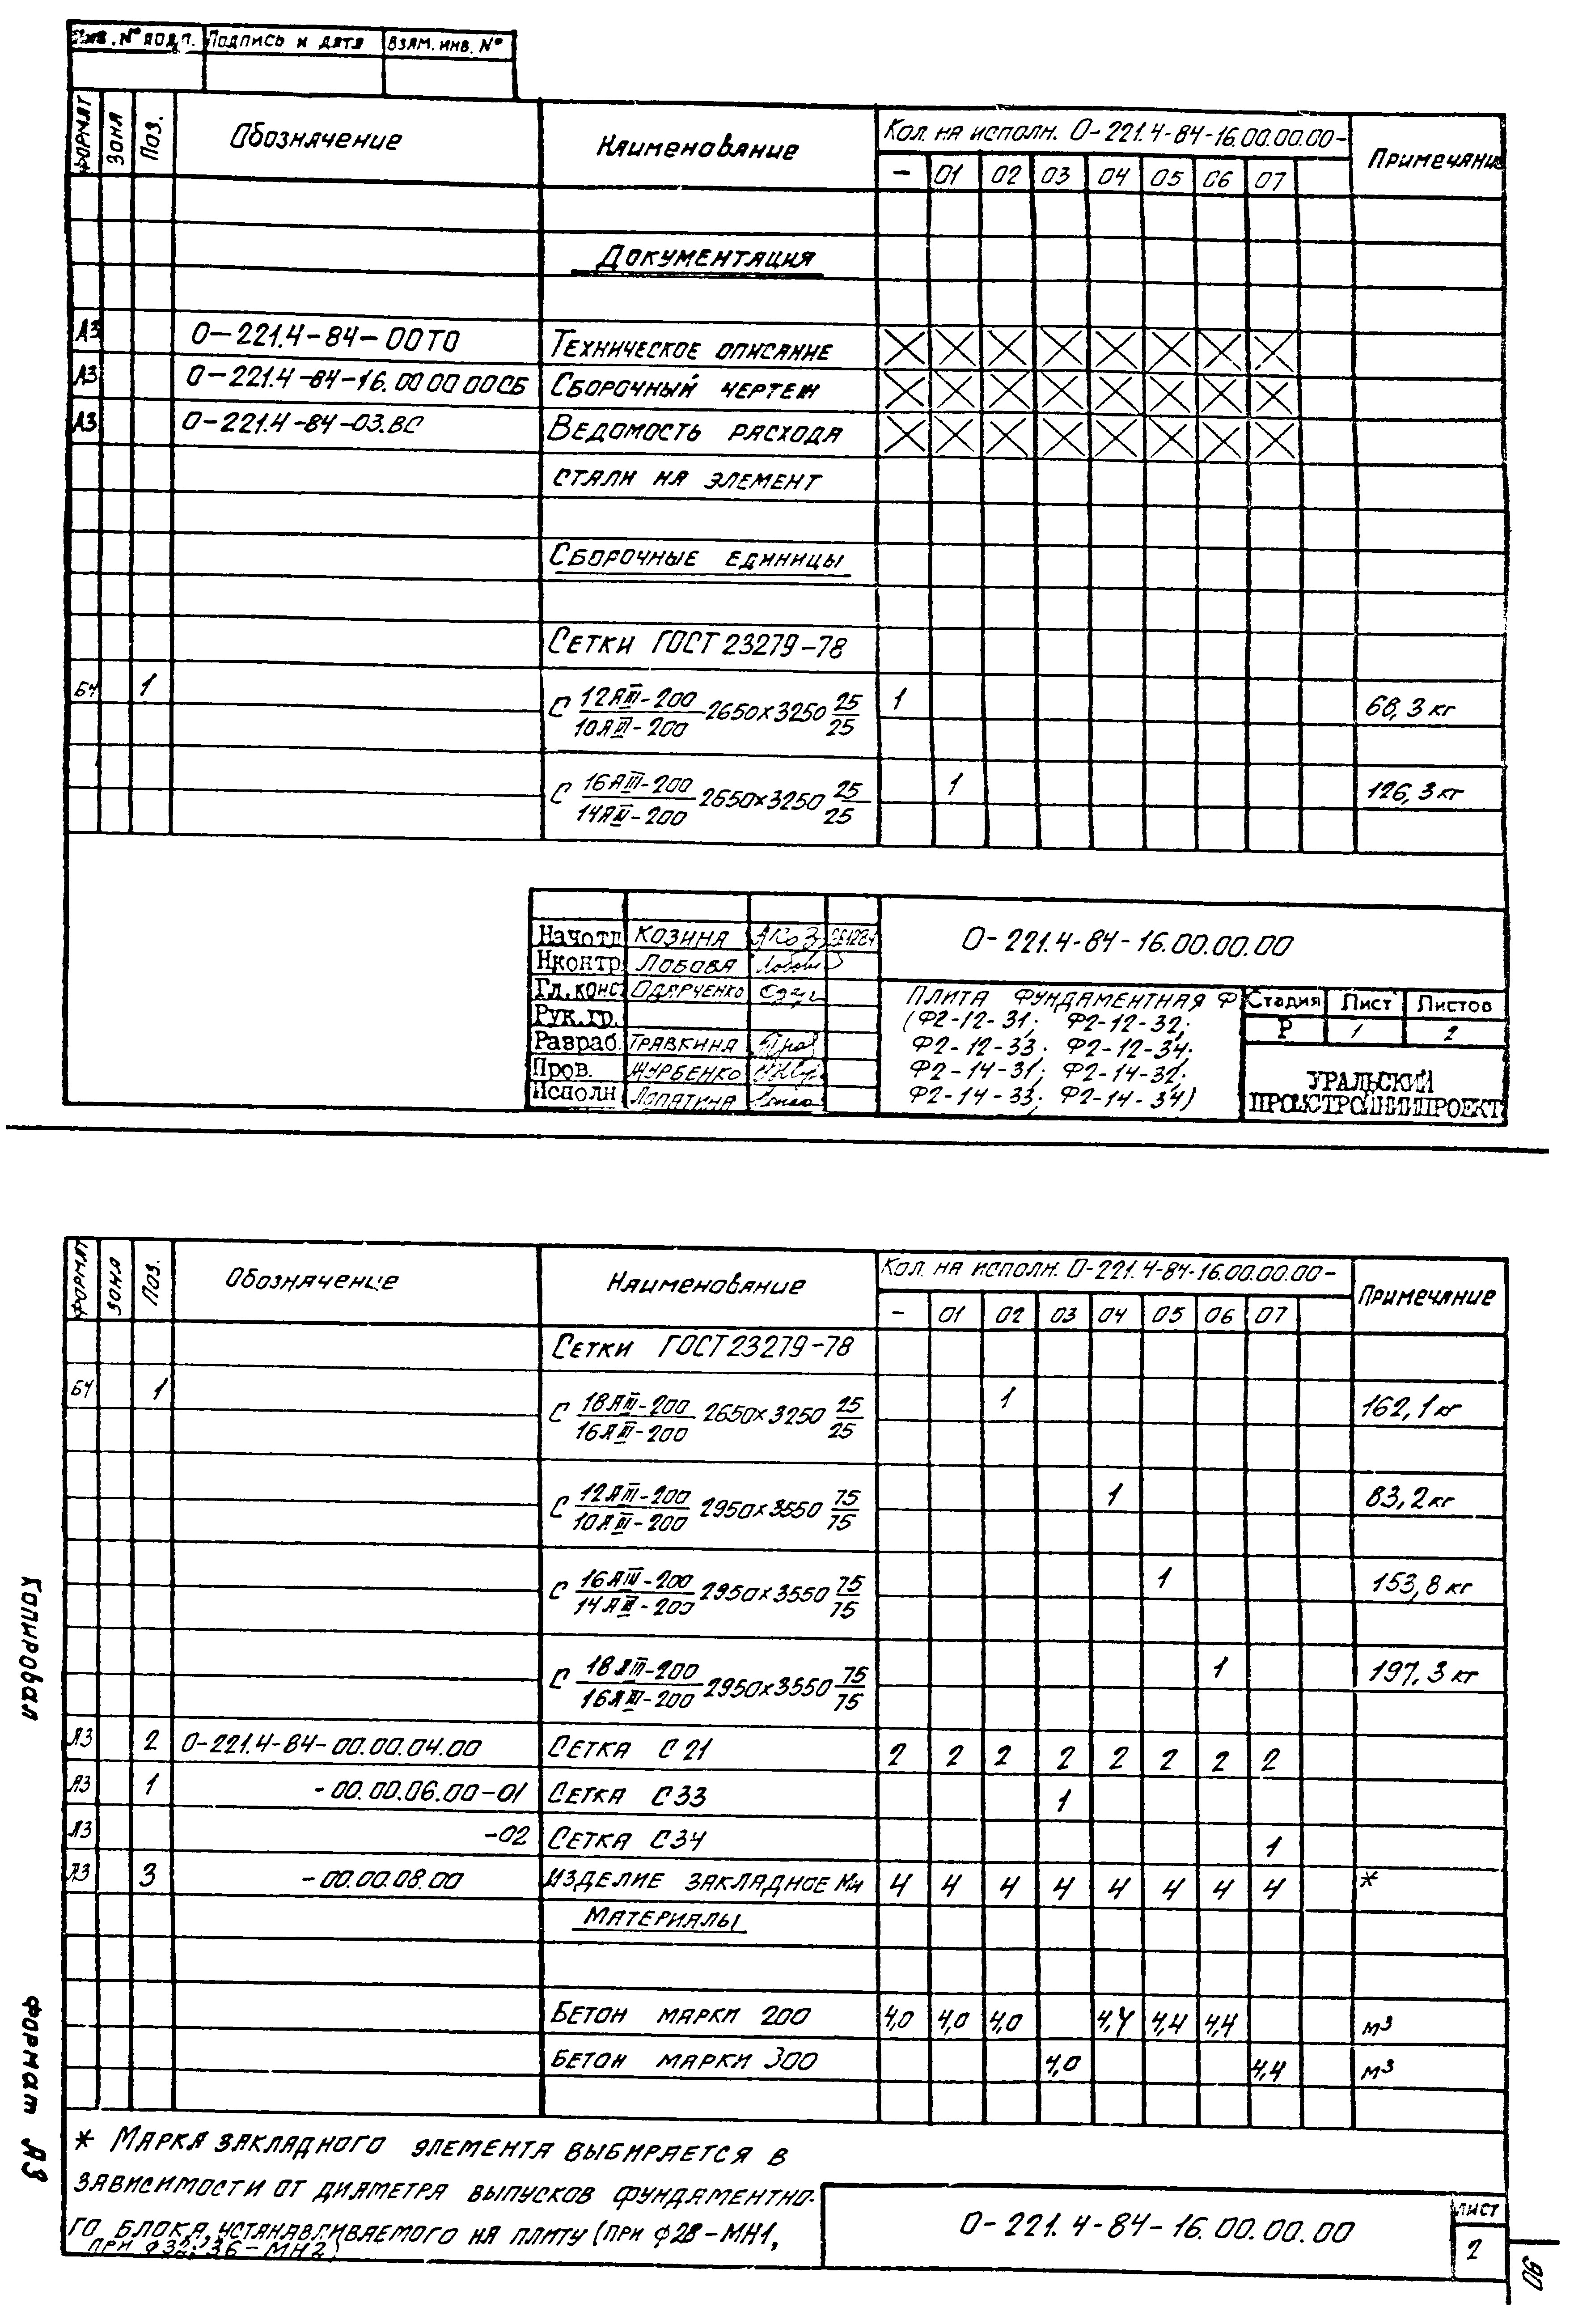 Инв. № подл. Подпись и дата Взам. инв. №
Формат Зона Поз. Обозначение Наименование Кол. на исполн. О-221.4-84-16.00.00.00- Примечание
- 01 02 03 04 05 06 07
Документация
А3 О-221.4-84-00ТО Техническое описание
А3 О-221.4-84-16.00 00 00 00СБ Сборочный чертеж
А3 О-221.4-84-03.ВС Ведомость расхода
стали на элемент
Сборочные единицы
Сетки ГОСТ 23279-78
БЧ 1 С 12АIII-200/10АIII-200 2650×3250 25/25 1 68,3 кг
С 16АIII-200/14АIII-200 2650×3250 25/25 1 126,3 кг
Нач.отд Козина
Н.контр. Лобова
Гл.конс. Одарченко
Рук.гр.
Разраб. Травкина
Пров. Журбенко
Исполн Лопатина
О-221.4-84-16.00.00.00
Плита фундаментная Ф
(Ф2-12-31; Ф2-12-32;
Ф2-12-33; Ф2-12-34;
Ф2-14-31; Ф2-14-32;
Ф2-14-33; Ф2-14-34)
Стадия Лист Листов
Р 1 2
УРАЛЬСКИЙ
ПРОМСТРОЙНИИПРОЕКТ
Формат Зона Поз. Обозначение Наименование Кол. на исполн. О-221.4-84-16.00.00.00- Примечание
- 01 02 03 04 05 06 07
Сетки ГОСТ 23279-78
БЧ 1 С 18АIII-200/16АIII-200 2650×3250 25/25 1 162,1 кг
С 12АIII-200/10АIII-200 2950×3550 75/75 1 83,2 кг
С 16АIII-200/14АIII-200 2950×3550 75/75 1 153,8 кг
С 18АIII-200/16АIII-200 2950×3550 75/75 1 197,3 кг
А3 2 О-221.4-84-00.00.04.00 Сетка С21 2 2 2 2 2 2 2 2
А3 1 -00.00.06.00-01 Сетка С33 1
А3 -02 Сетка С34 1
А3 3 -00.00.08.00 Изделие закладное Мн 4 4 4 4 4 4 4 4 *
Материалы
Бетон марки 200 4,0 4,0 4,0 4,4 4,4 4,4 м³
Бетон марки 300 4,0 4,4 м³
* Марка закладного элемента выбирается в
зависимости от диаметра выпусков фундаментно-
го блока, устанавливаемого на плиту (при ф28-МН1,
при ф32; 36-МН2)
О-221.4-84-16.00.00.00
Лист
2
Копировал
Формат А3
90